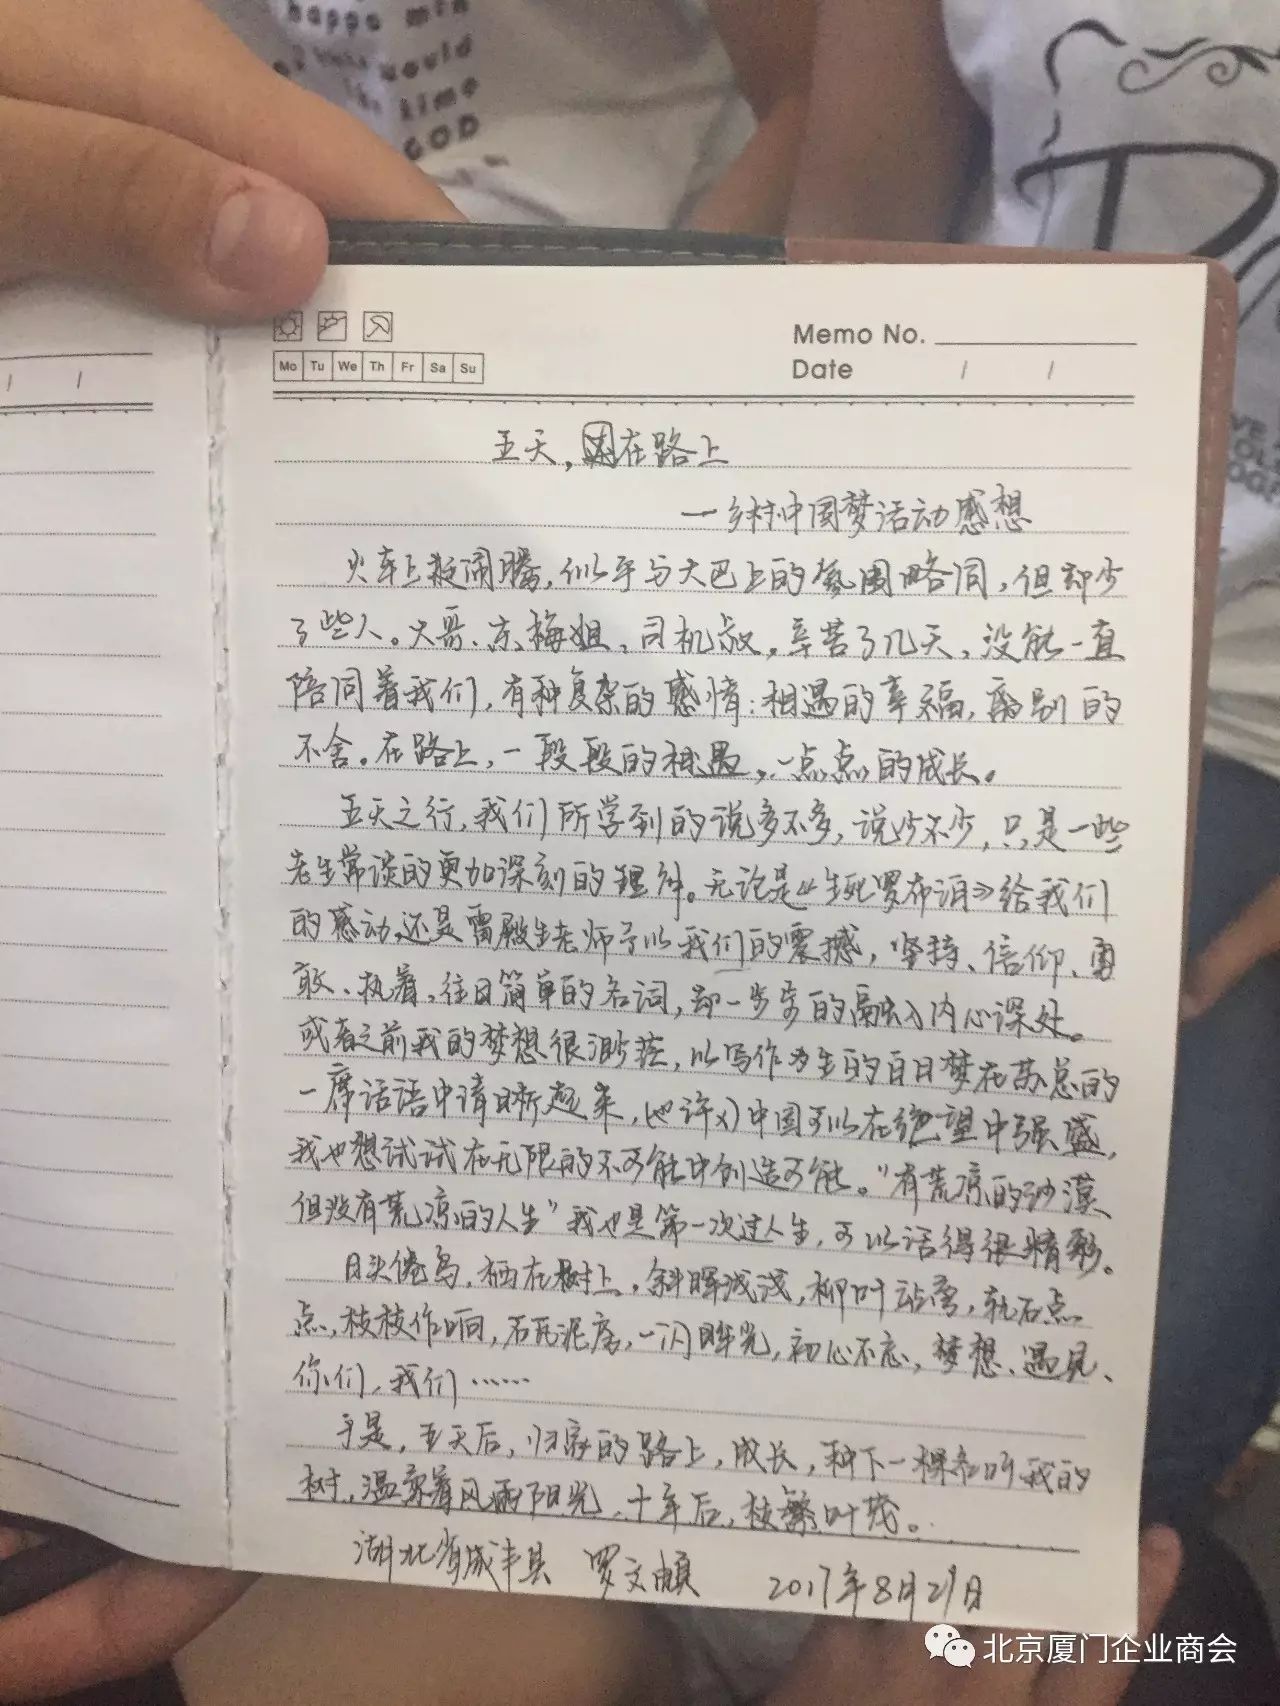 happo min
would
time
GOD
Memo No.
Date / /
Mo Tu We Th Fr Sa Su
五天，在路上
一乡村中国梦活动感想
火车上挺闹腾，似乎与大巴上的氛围略同，但却少
了些人。火哥、京梅姐、司机叔，辛苦了几天，没能一直
陪同着我们，有种复杂的感情：相遇的幸福，离别的
不舍。在路上，一段段的相遇，一点点的成长。
五天之行，我们所学到的说多不多，说少不少，只是一些
老生常谈的更加深刻的理解。无论是《生死罗布泊》给我们
的感动，还是雷殿生老师予以我们的震撼，坚持、信仰、勇
敢、执着，往日简单的名词，却一步步的融入内心深处。
或者之前我的梦想很渺茫，以写作为生的白日梦在苏总的
一席话语中清晰起来，也许义中国可以在绝望中强盛，
我也想试试在无限的不可能中创造可能。“有荒凉的沙漠
但没有荒凉的人生”我也是第一次过人生，可以活得很精彩。
日头倦鸟，栖在树上，斜晖浅浅，柳叶
点，枝枝作响，石瓦泥房，一闪眸光，初心不忘，梦想、遇见、
你们，我们……
于是，五天后，归家的路上，成长，种下一棵我的
树，温柔着风雨阳光，十年后，枝繁叶茂。
湖北省咸丰县 罗文 2017年8月29日
北京厦门企业商会